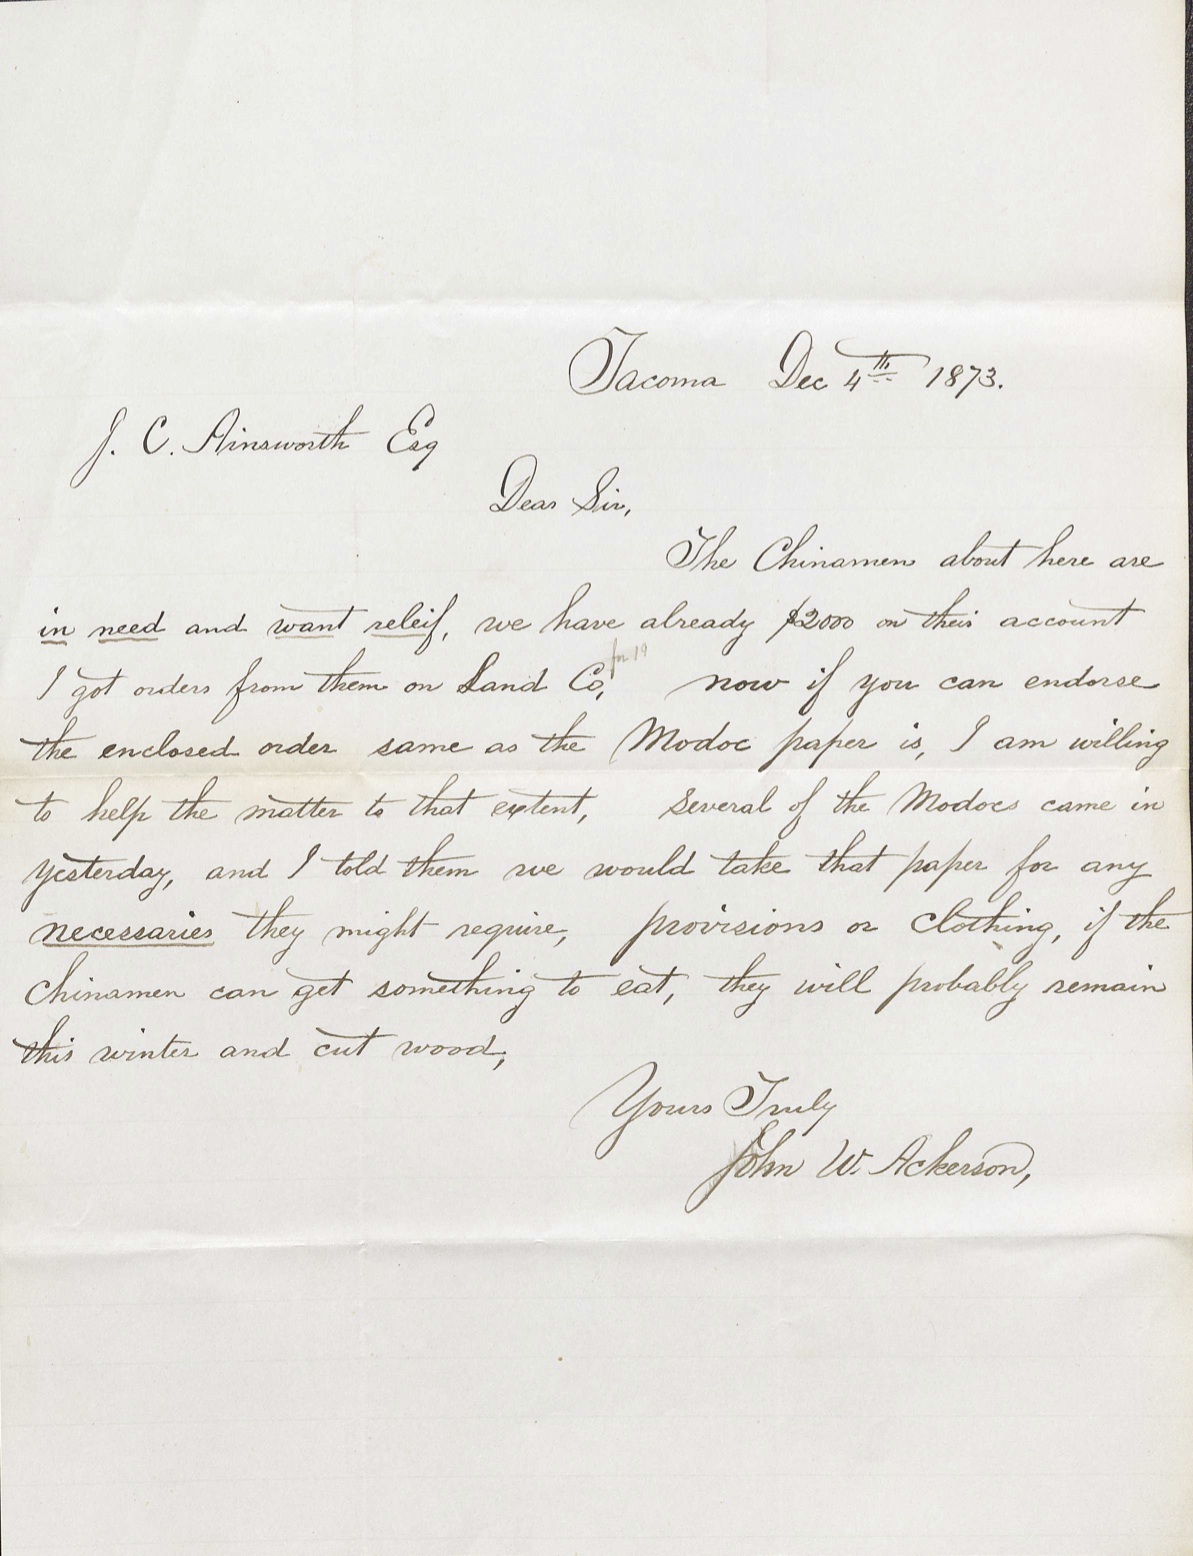 Tacoma Dec 4th 1873.
J. C. Ainsworth Esq
Dear Sir,
The Chinamen about here are
in need and want releif, we have already $2000 on their account
for 19
I got orders from them on Land Co, now if you can endorse
the enclosed order same as the Modoc paper is, I am willing
to help the matter to that extent, Several of the Modocs came in
yesterday, and I told them we would take that paper for any
necessaries they might require, provisions or clothing, if the
Chinamen can get something to eat, they will probably remain
this winter and cut wood,
Yours Truly
John W. Ackerson,